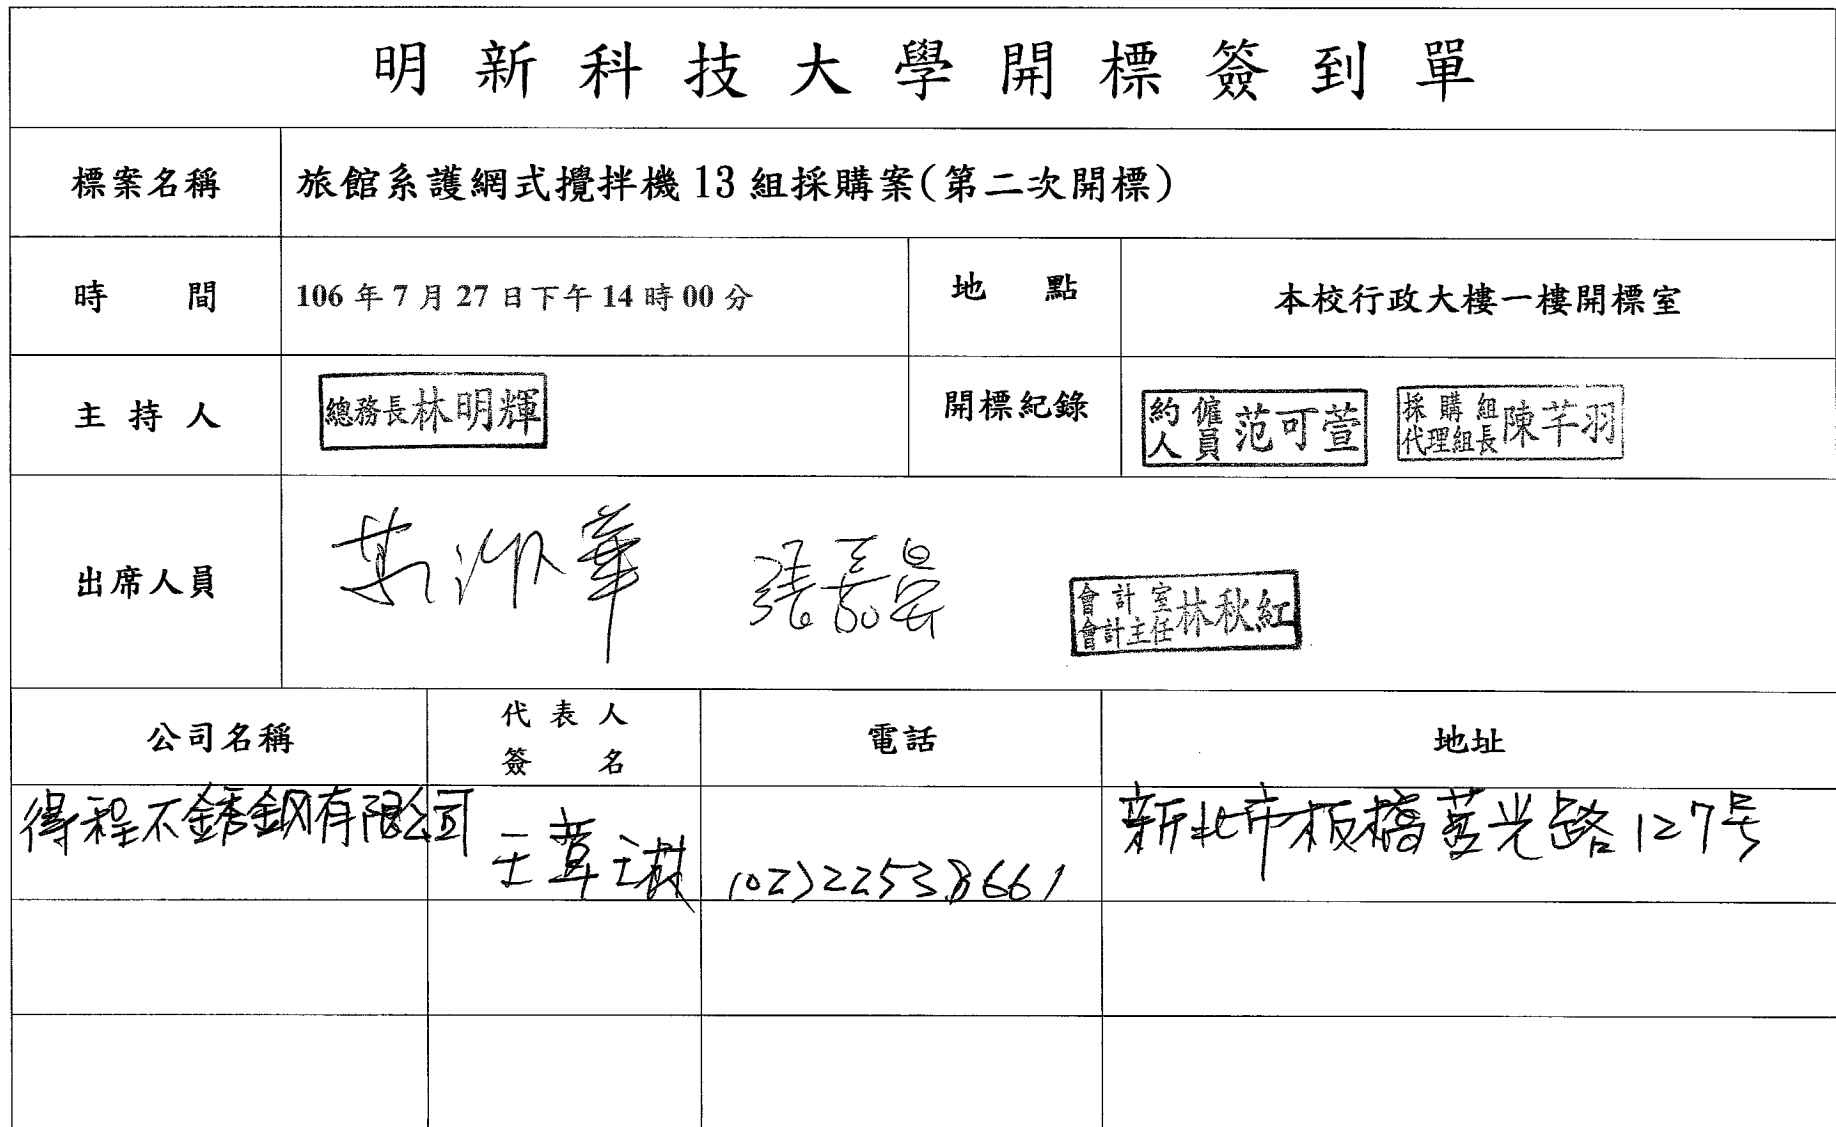 明新科技大學開標簽到單
標案名稱 旅館系護網式攪拌機13組採購案(第二次開標)
時間 106年7月27日下午14時00分 地點 本校行政大樓一樓開標室
主持人 總務長林明輝 開標紀錄 約僱人員范可萱 採購組代理組長陳芊羽
出席人員 會計室會計主任林秋紅
公司名稱 代表人簽名 電話 地址
得程不銹鋼有限公司 王 (02)22538661 新北市板橋 光路127号